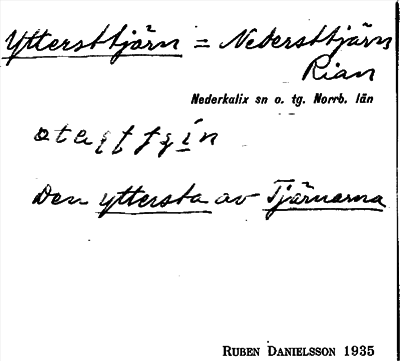 Yttersttjärn = Nedersttjärn
Rian
Nederkalix sn o. tg. Norrb. län
Den yttersta av Tjärnarna
RUBEN DANIELSSON 1935